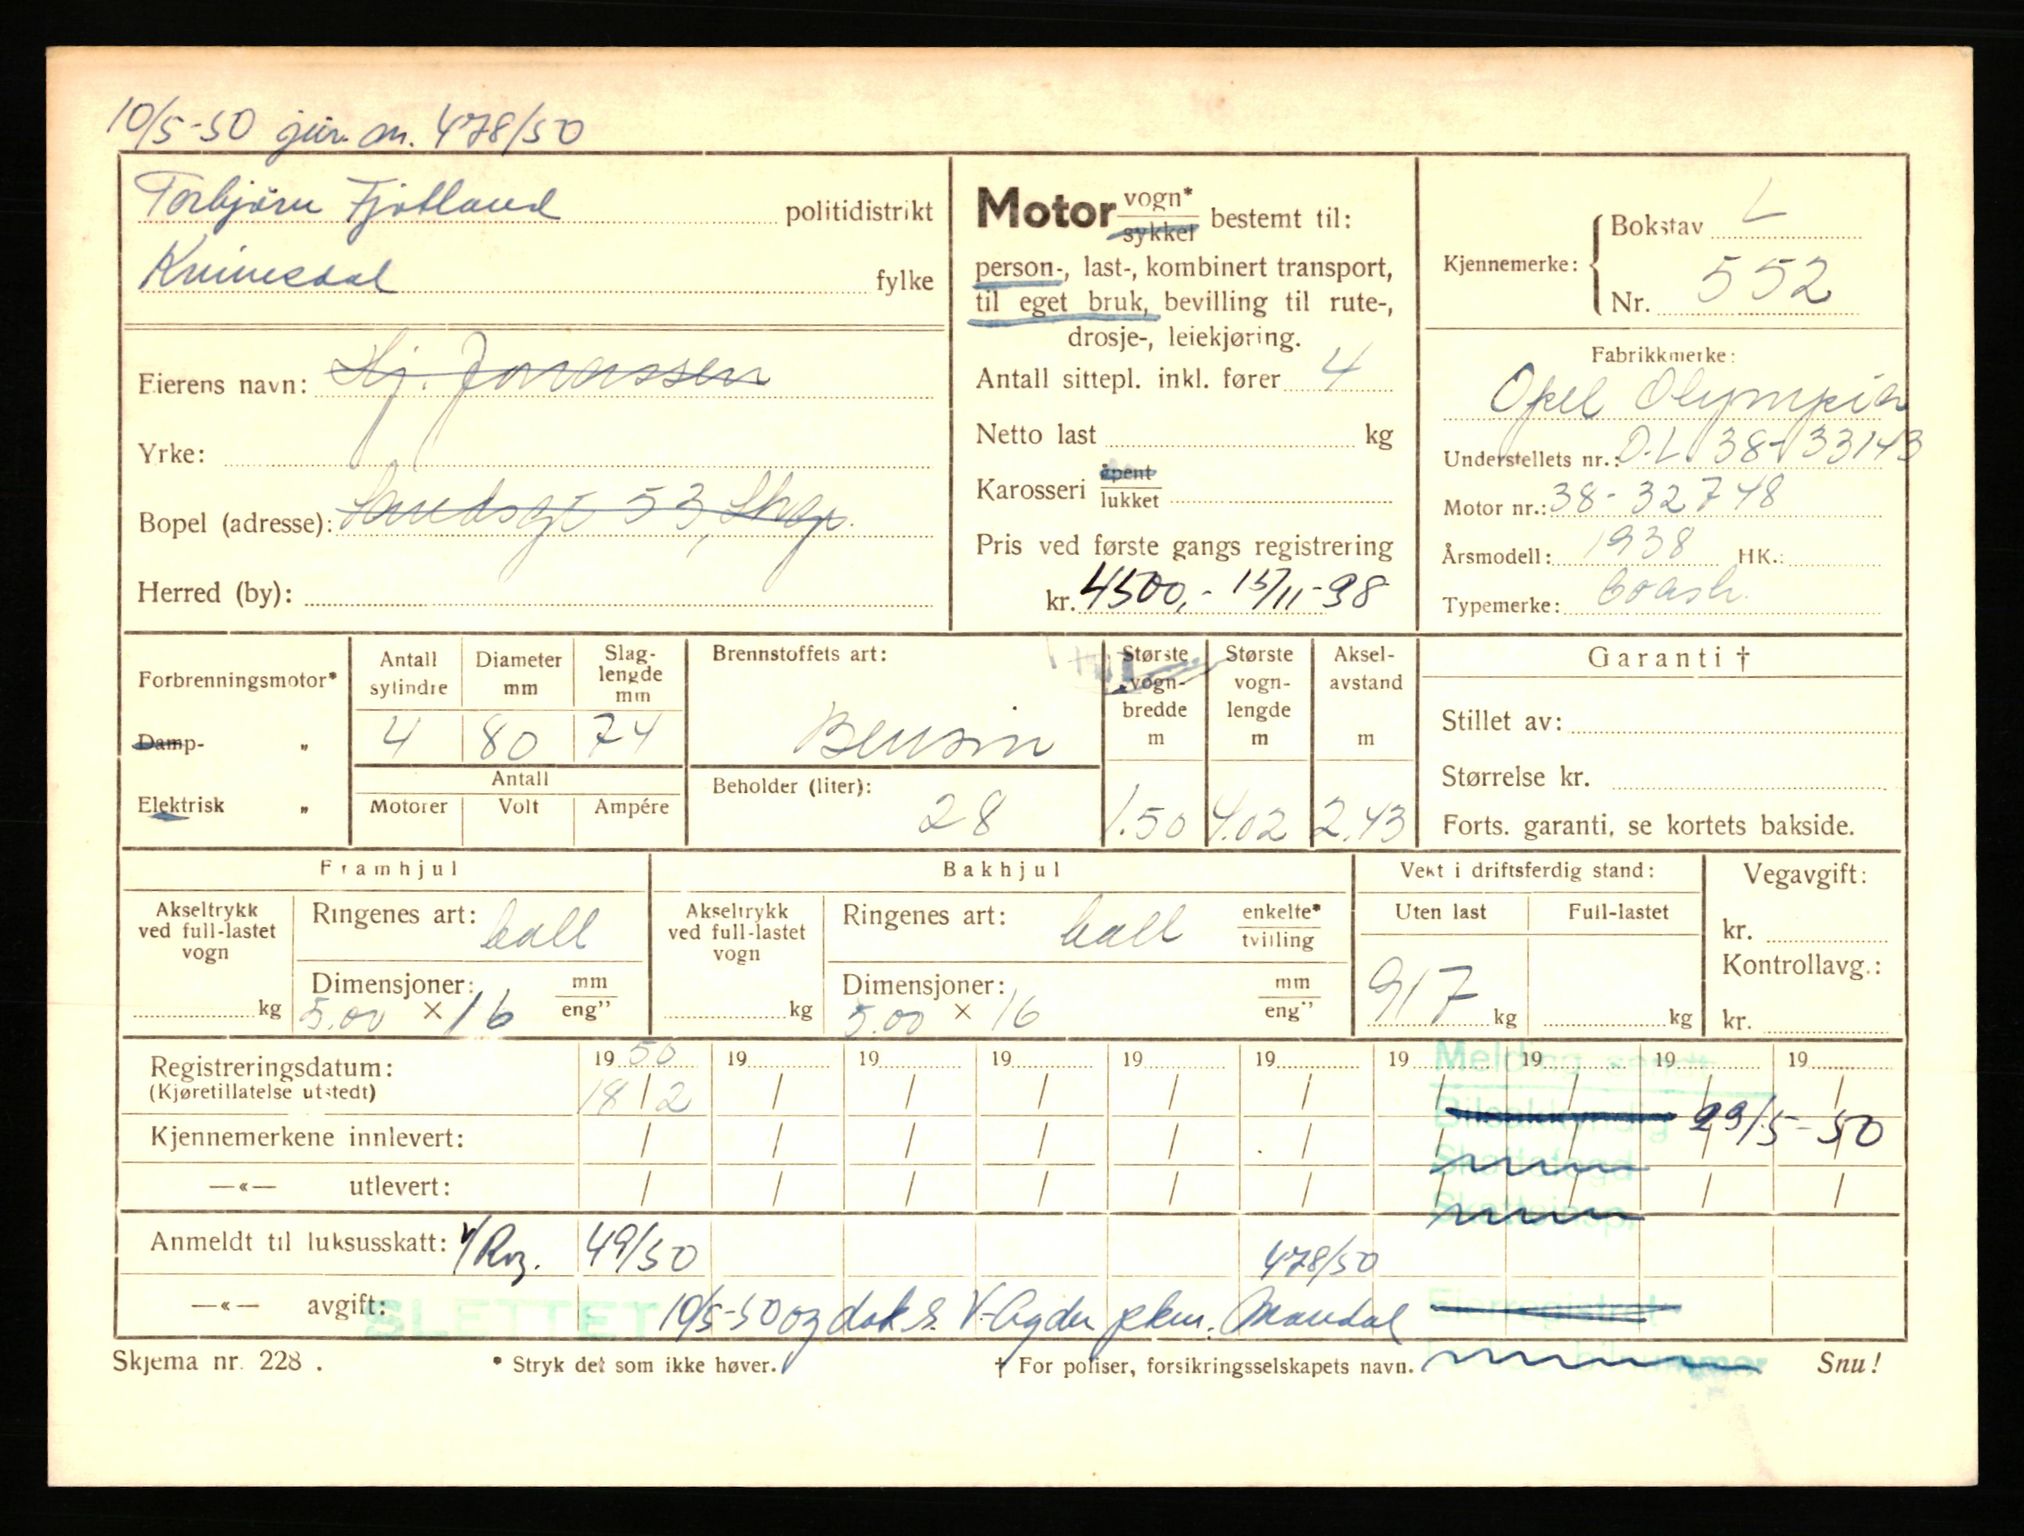 10/5-50 jur. m. 478/50
Torbjørn Fjotland politidistrikt
Kvinesdal fylke
Eierens navn: Hj. Jonassen
Yrke:
Bopel (adresse): Sandsgt 53, Skap.
Herred (by):
Motor vogn* / sykkel bestemt til:
person-, last-, kombinert transport,
til eget bruk, bevilling til rute-,
drosje-, leiekjøring.
Antall sittepl. inkl. fører 4
Netto last kg
Karosseri åpent / lukket
Pris ved første gangs registrering
kr. 4500,- 15/11-38
Kjennemerke: Bokstav L
Nr. 552
Fabrikkmerke:
Opel Olympia
Understellets nr.: O.L. 38-33143
Motor nr.: 38-32748
Årsmodell: 1938 HK.:
Typemerke: Coach.
Forbrenningsmotor*
Damp- "
Elektrisk "
Antall sylindre Diameter mm Slag-lengde mm
4 80 74
Antall
Motorer Volt Ampére
Brennstoffets art:
Bensin
Beholder (liter):
28
Største vogn-bredde m Største vogn-lengde m Aksel-avstand m
1.50 4.02 2.43
Garanti †
Stillet av:
Størrelse kr.
Forts. garanti, se kortets bakside.
Framhjul
Akseltrykk ved full-lastet vogn kg
Ringenes art: ball
Dimensjoner: mm / eng"
5.00 × 16
Bakhjul
Akseltrykk ved full-lastet vogn kg
Ringenes art: ball enkelte* / tvilling
Dimensjoner: mm / eng"
5.00 × 16
Vekt i driftsferdig stand:
Uten last Full-lastet
917 kg kg
Vegavgift:
kr.
Kontrollavg.:
kr.
Registreringsdatum: 19 50 19 19 19 19 19 19 19 19 19
(Kjøretillatelse utstedt) 18/2 / / / / / / / / /
Melding sendt
Bilsakkyndig 29/5-50
Kjennemerkene innlevert: / / / / / / / / / /
Skattefogd
—«— utlevert: / / / / / / / / / /
Anmeldt til luksusskatt: 49/50 478/50
—«— avgift: SLETTET 10/5-50 og dok s. V-Agder pkm. Mandal
Eierregistret
Skjema nr. 228.
* Stryk det som ikke høver.
† For poliser, forsikringsselskapets navn.
Snu!